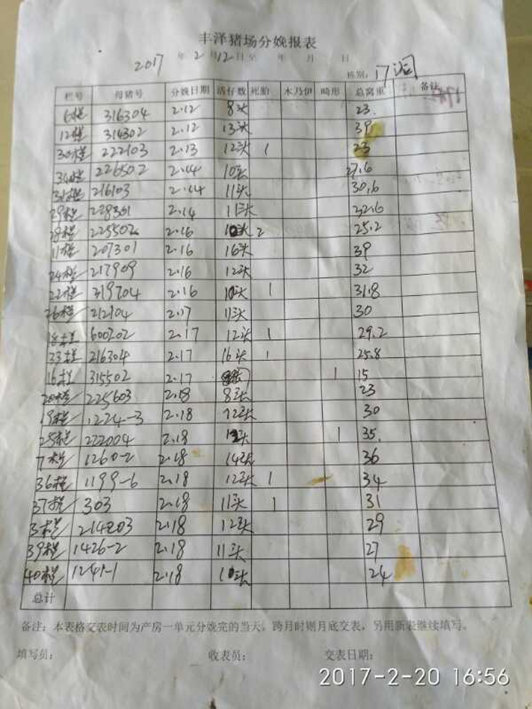 丰洋猪场分娩报表
2017 年 2 月 12 日至 年 月 日
栋别: 17
栏号 母猪号 分娩日期 活仔数 死胎 木乃伊 畸形 总窝重 备注
6栏 316304 2.12 8头 23
12栏 314302 2.12 13头 39
30栏 222103 2.13 12头 1 23
226502 2.14 10头 27.6
216103 2.14 11头 30.6
29栏 2.14 11头 32.6
225502 2.16 2 25.2
11栏 207301 2.16 16头 39
24栏 217909 2.16 12头 32
22栏 319704 2.16 1 31.8
26栏 212104 2.17 11头 30
18栏 600202 2.17 12头 1 29.2
23栏 216304 2.17 16头 1 25.8
16栏 315502 2.17 1 15
225603 2.18 8头 23
19栏 1224-3 2.18 12头 30
222004 2.18 1 35
7栏 1260-2 2.18 14头 36
36栏 1199-6 2.18 12头 1 34
37栏 303 2.18 11头 1 31
2.18 12头 29
39栏 1426-2 2.18 11头 27
40栏 1241-1 2.18 24
总计
备注：本表格交表时间为产房一单元分娩完的当天，跨月时则月底交表，另用新表继续填写。
填写员： 收表员： 交表日期：
2017-2-20 16:56